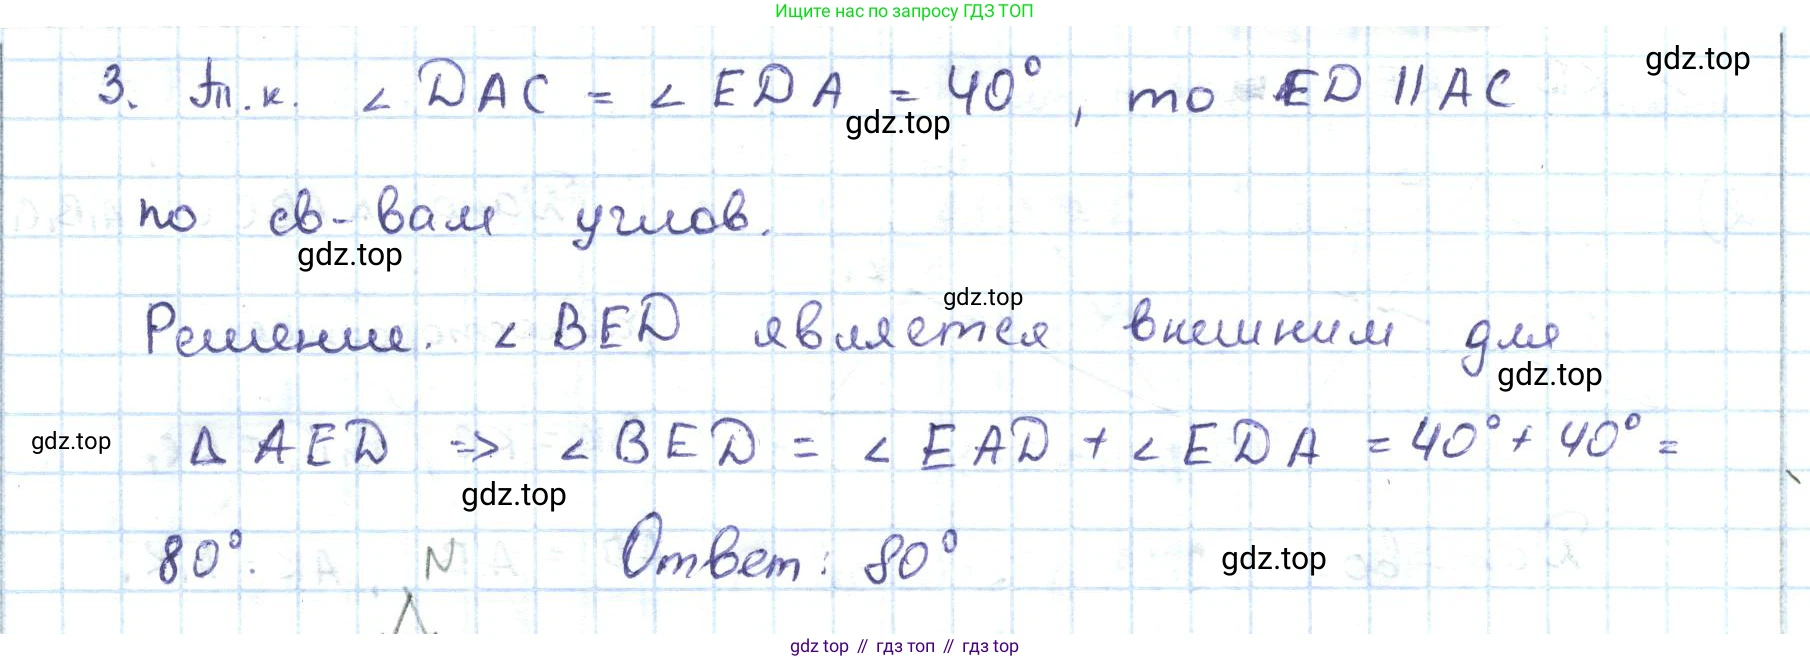 Ищите нас по запросу ГДЗ ТОП
gdz.top
3. Т.к. ∠DAC = ∠EDA = 40°, то ED || AC
gdz.top
по св-вам углов.
gdz.top
gdz.top
Решение. ∠BED является внешним для
gdz.top
gdz.top
Δ AED => ∠BED = ∠EAD + ∠EDA = 40° + 40° =
gdz.top
80°. N Ответ: 80°
gdz.top
gdz.top // гдз топ // гдз top